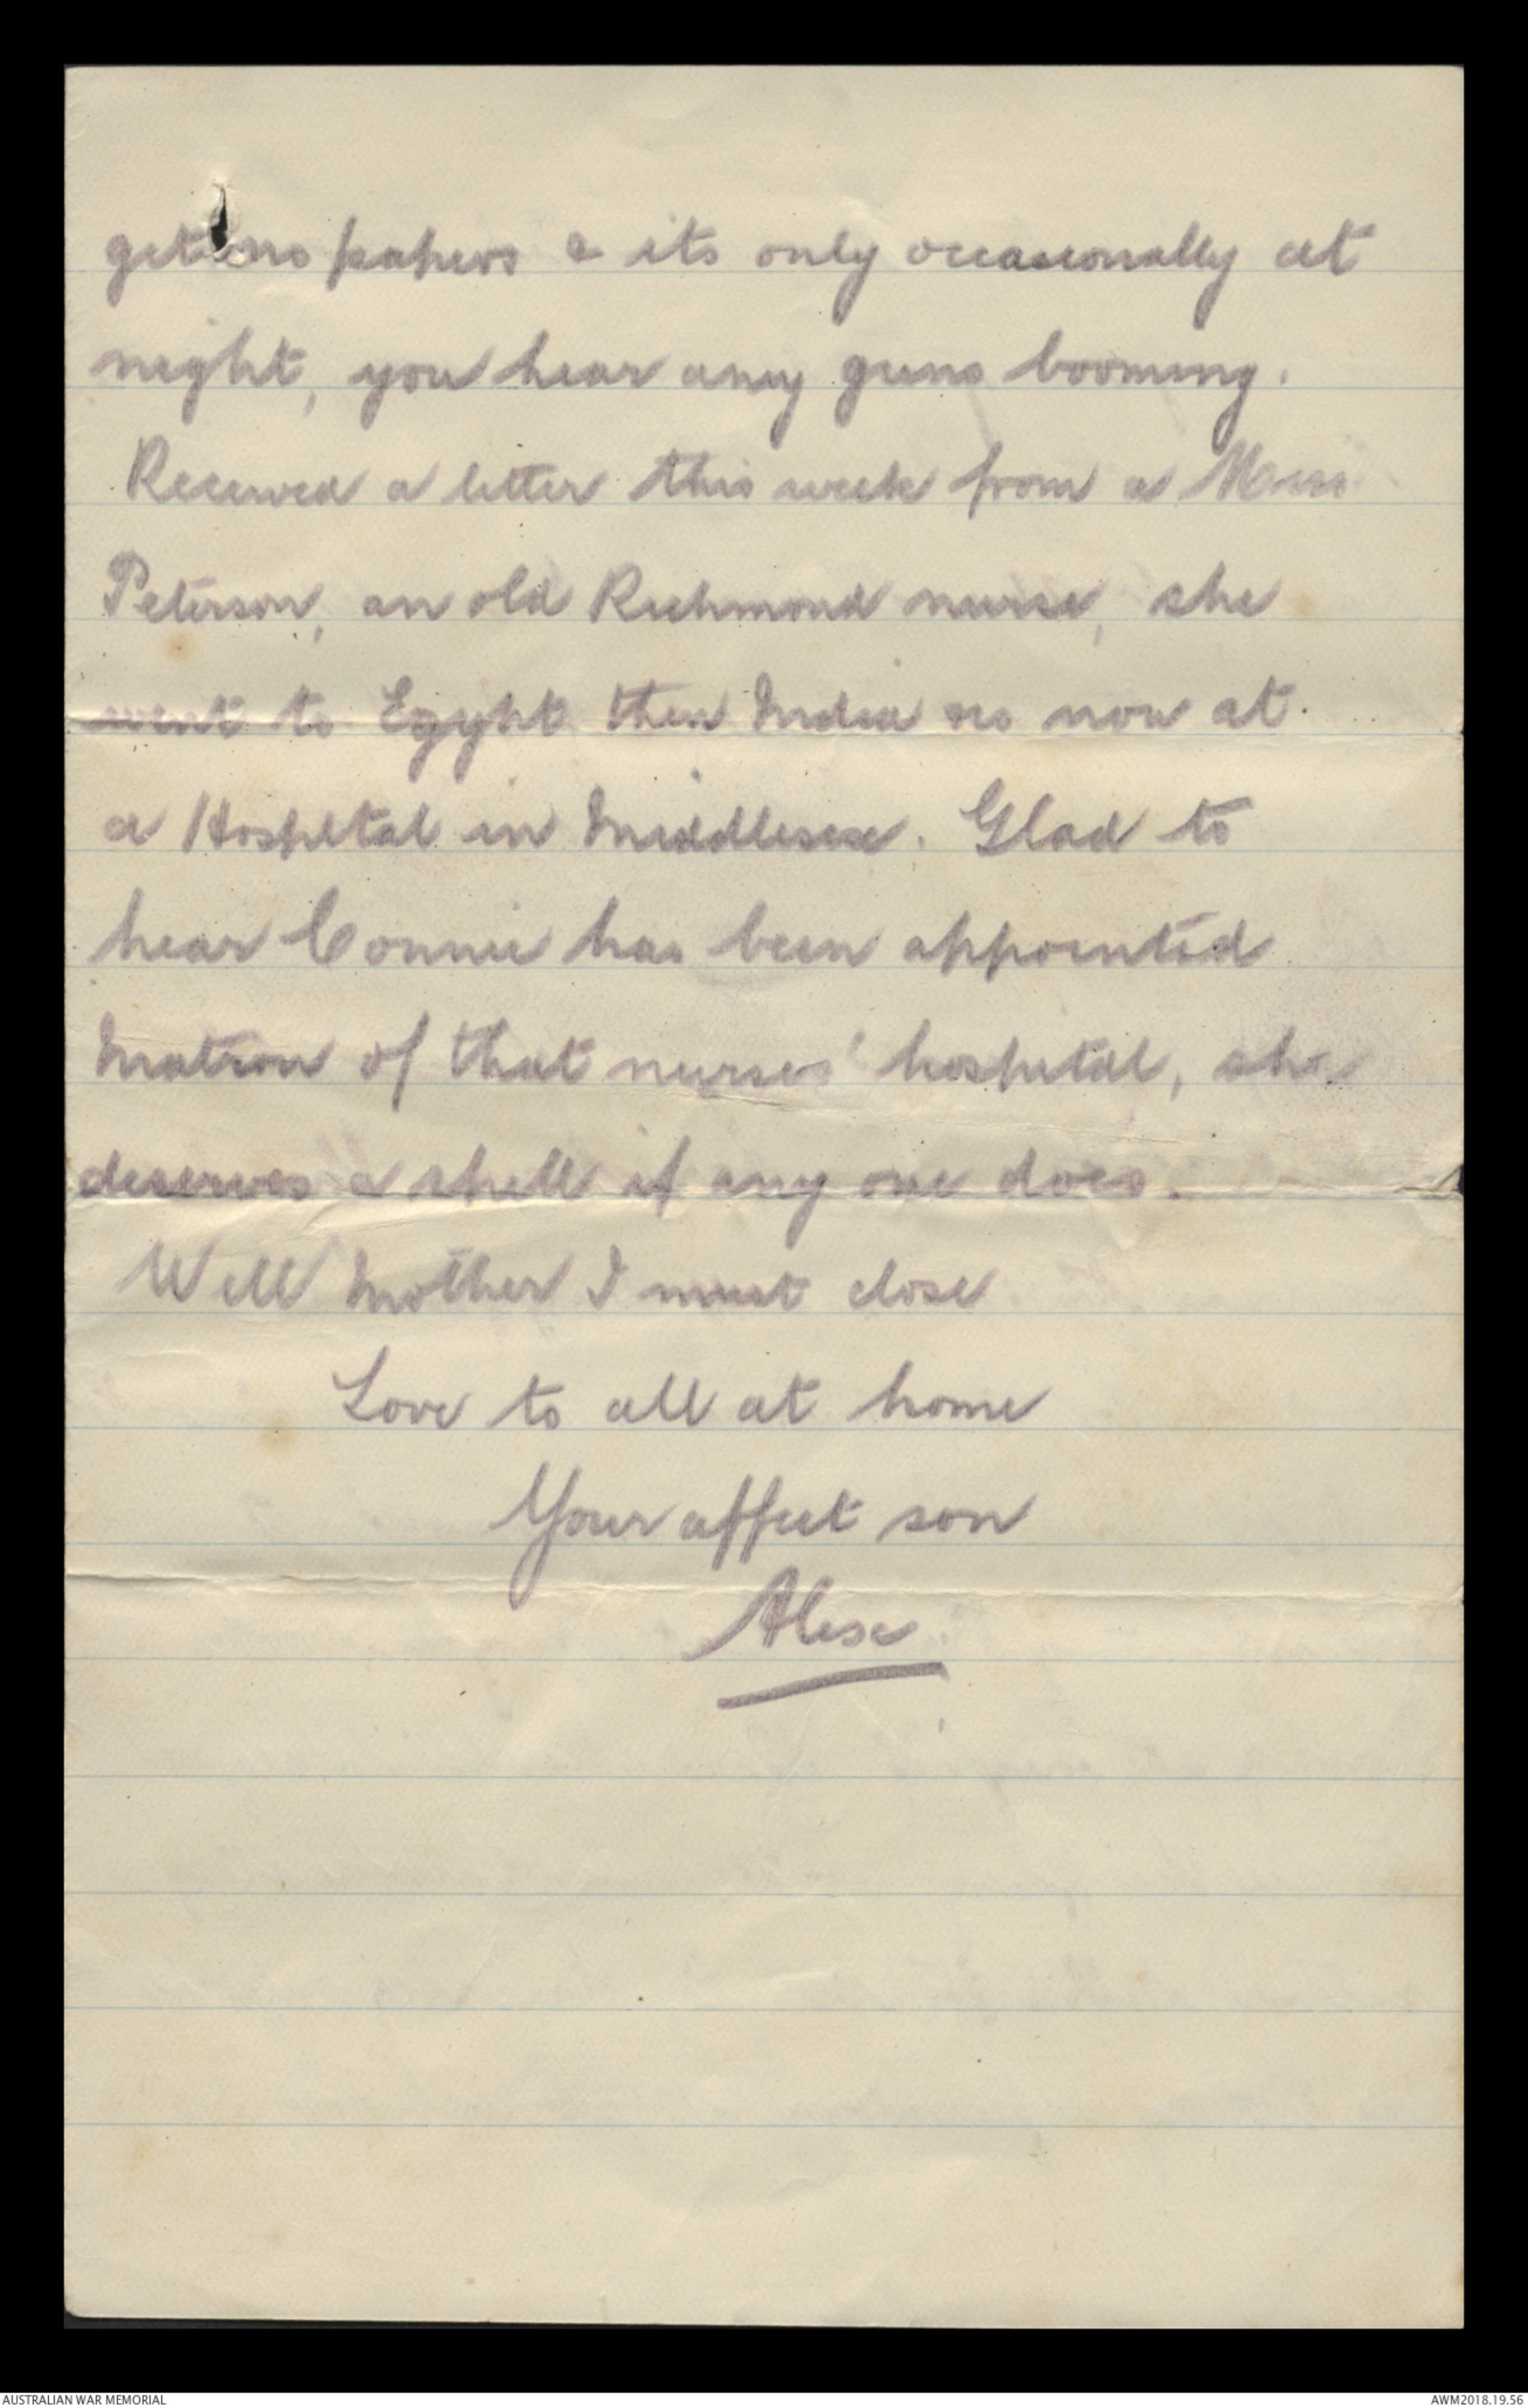 get no papers & its only occasionally at
night, you hear any guns booming.
Received a letter this week from a Miss
Peterson, an old Richmond nurse, she
went to Egypt then India is now at
a Hospital in Middlesex. Glad to
hear Connie has been appointed
Matron of that nurses' hospital, she
deserves a spell if any one does.
Well Mother I must close
Love to all at home
Your affect son
Alex
AUSTRALIAN WAR MEMORIAL
AWM2018.19.56